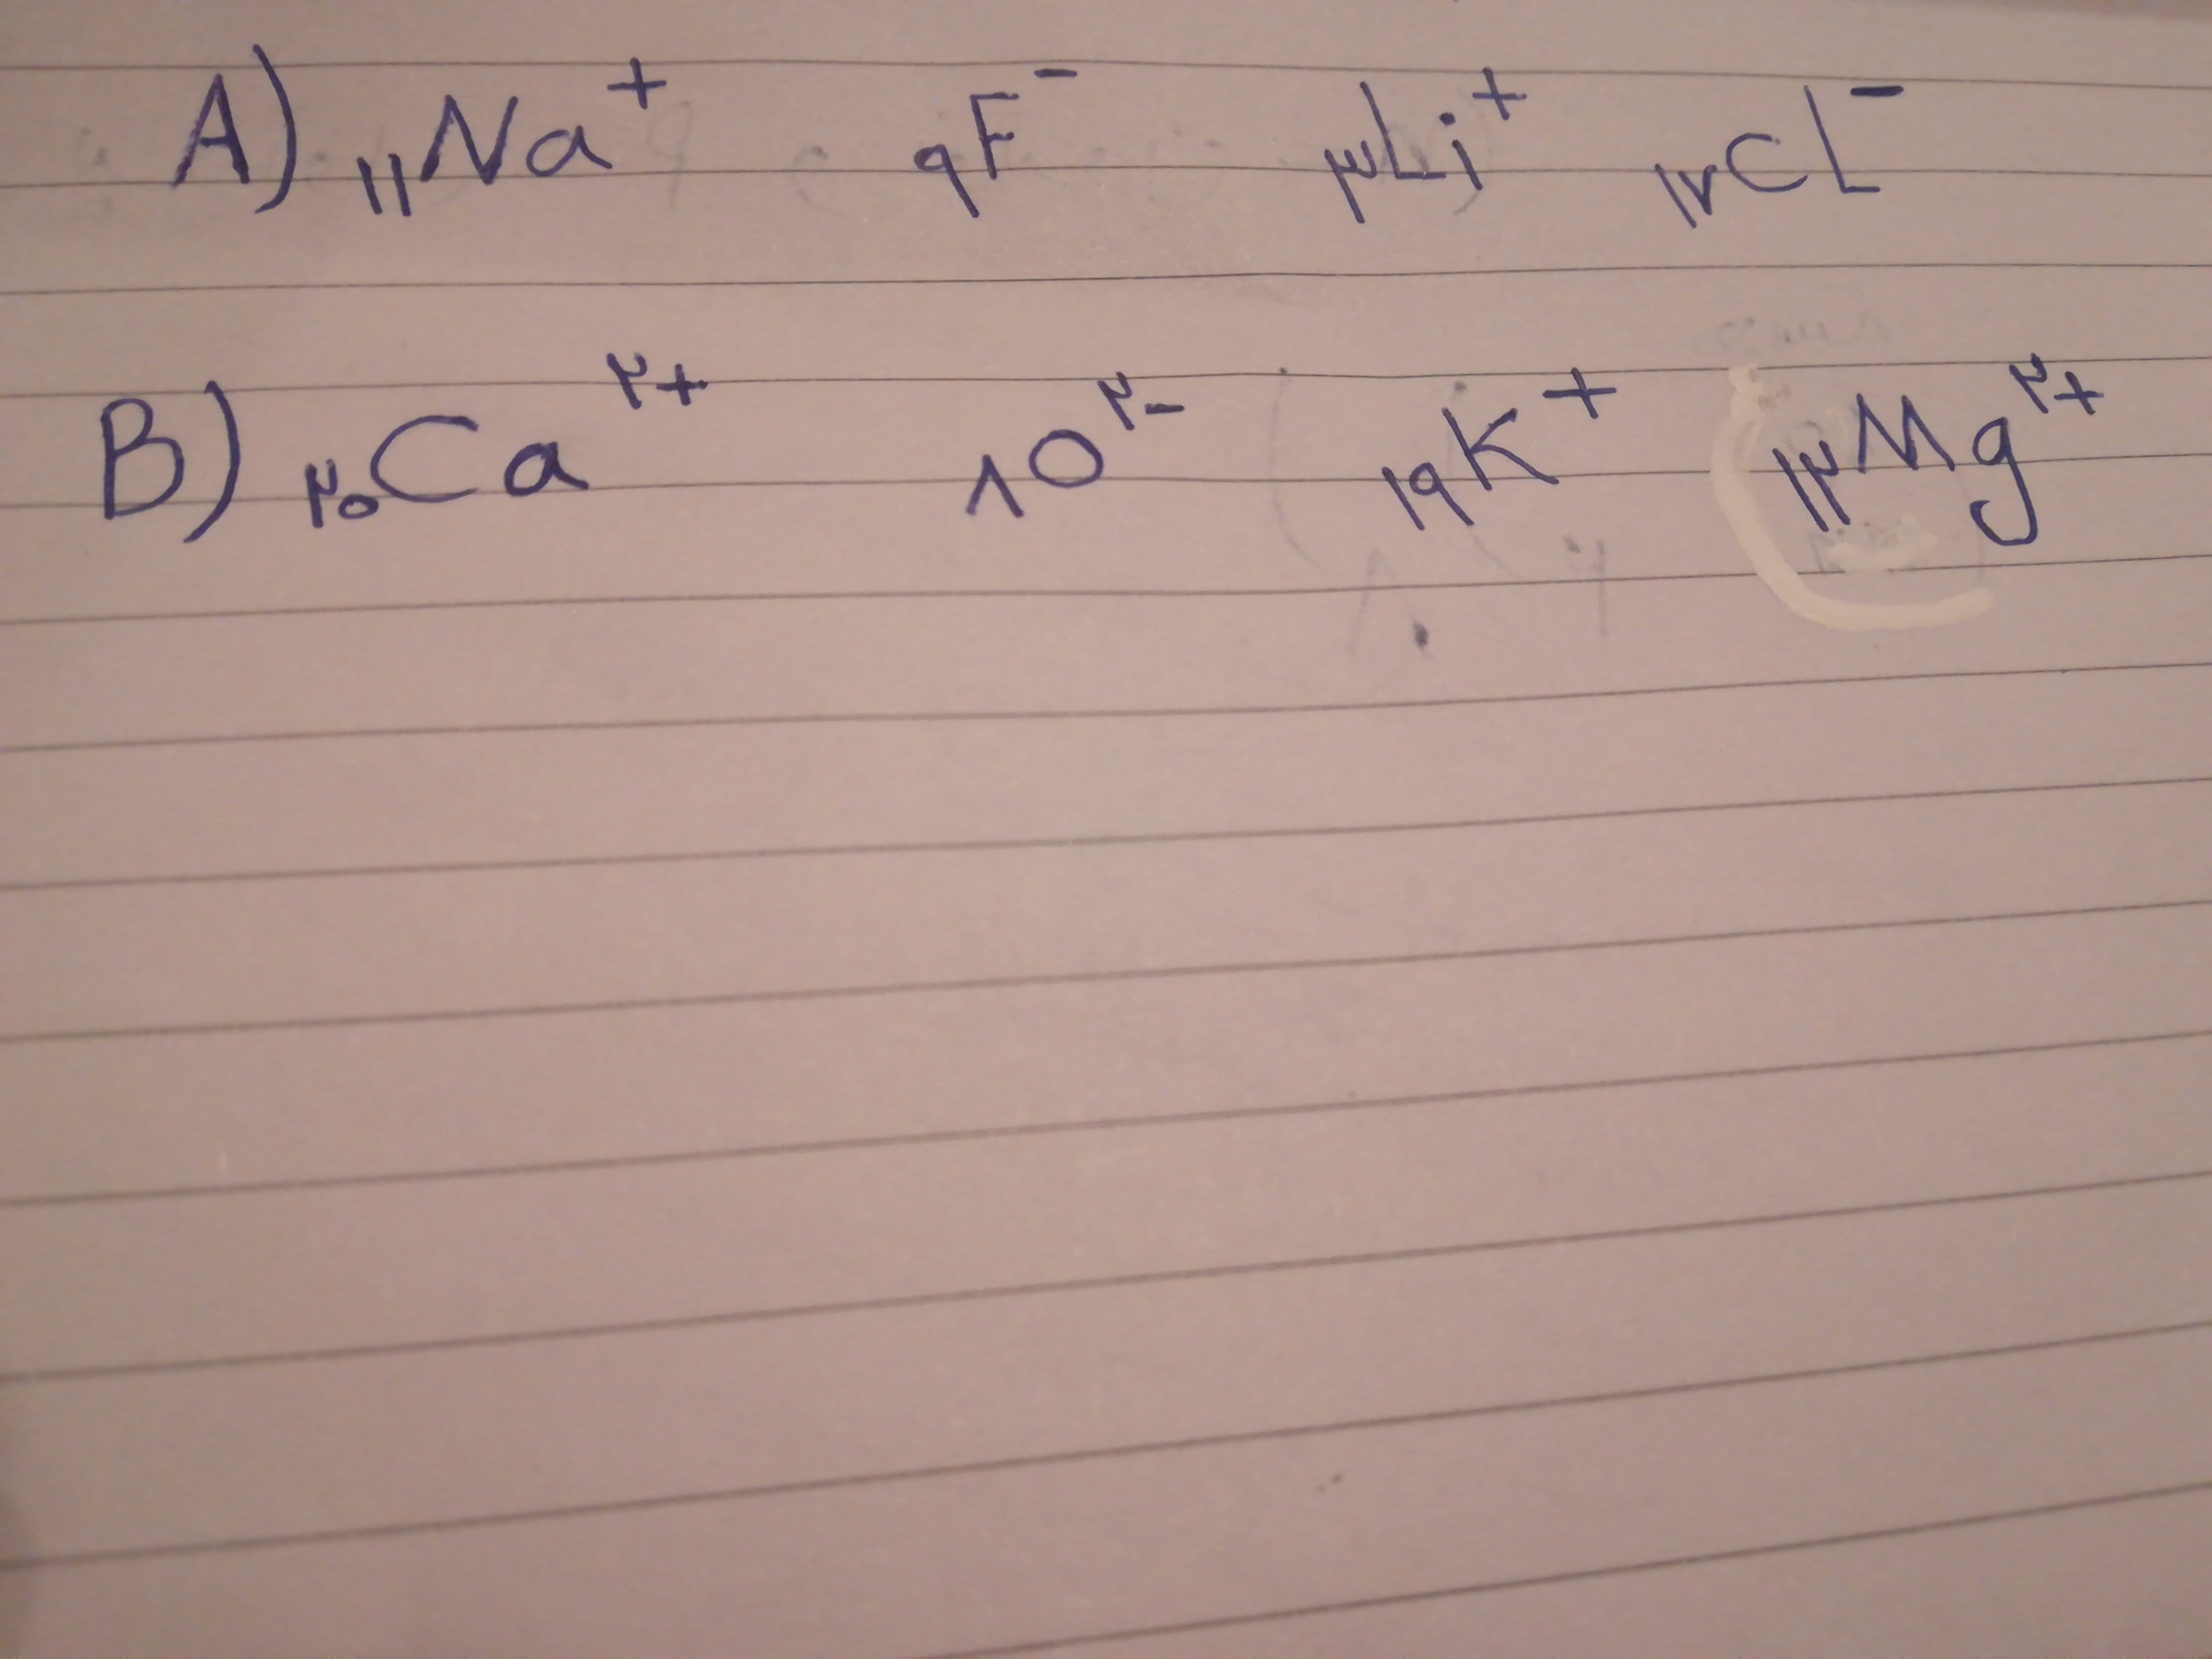 A) ₁₁Na⁺ ۹F⁻ ۳Li⁺ ۱۷CL⁻
B) ۲۰Ca²⁺ ۸O²⁻ ۱۹K⁺ ۱۲Mg²⁺